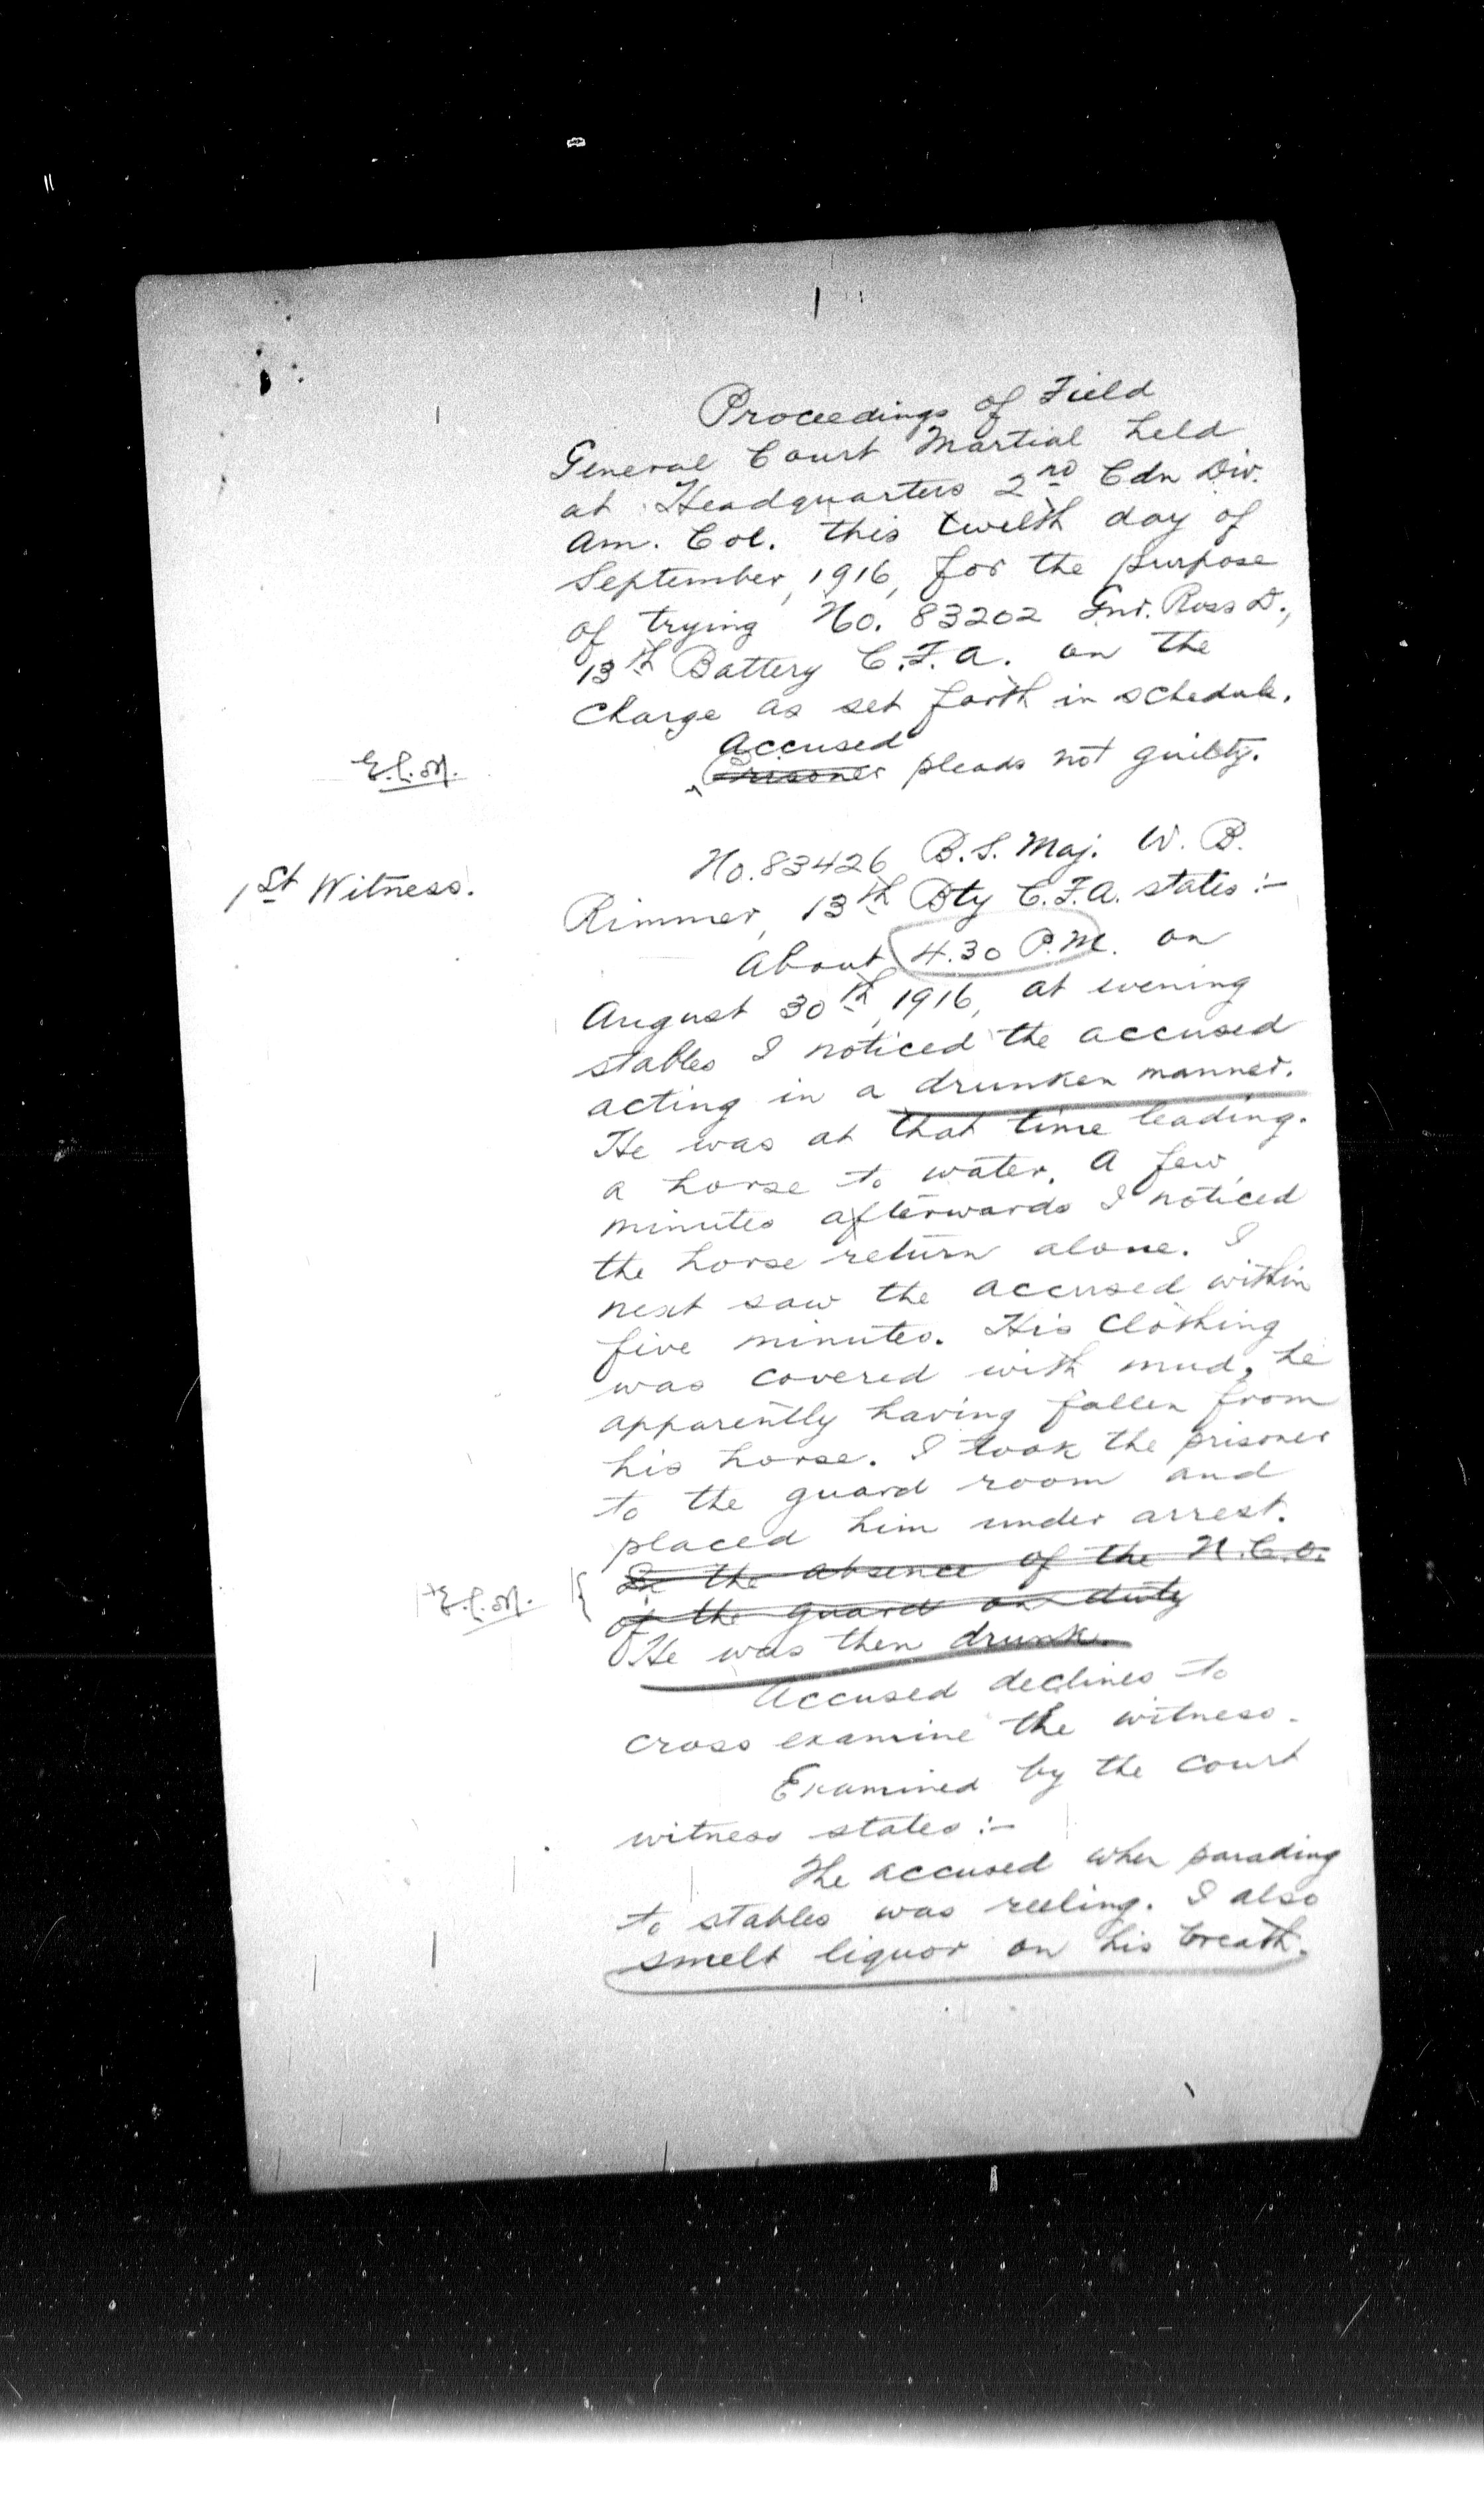 Proceedings of Field
General Court Martial held
at Headquarters 2nd Cdn Div.
Am. Col. this twelth day of
September, 1916, for the purpose
of trying No. 83202 Gnr. Ross D.,
13th Battery C.F.A. on the
charge as set forth in schedule.
Accused
E.C.M. Prisoner pleads not guilty.
No. 83426 B.S. Maj. W. B.
1st Witness. Rimmer, 13th Bty C.F.A. states :-
About 4.30 P.M. on
August 30th, 1916, at evening
stables I noticed the accused
acting in a drunken manner.
He was at that time leading.
a horse to water. A few
minutes afterwards I noticed
the horse return alone. I
next saw the accused within
five minutes. His clothing
was covered with mud, he
apparently having fallen from
his horse. I took the prisoner
to the guard room and
placed him under arrest.
In the absence of the N.C.O.
E.C.M. of the guard on duty
He was then drunk.
Accused declines to
cross examine the witness.
Examined by the court
witness states :-
The accused when parading
to stables was reeling. I also
smelt liquor on his breath.